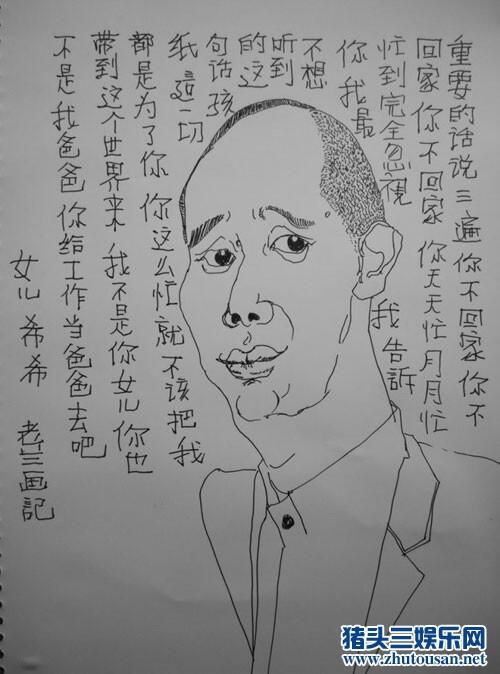 重要的话说三遍你不回家你不
回家你不回家你天天忙月月忙
忙到完全忽視我告訴
你我最
不想
听到
的这
句话孩
纸這一切
都是为了你你这么忙就不该把我
带到这个世界来我不是你女儿你也
不是我爸爸你给工作当爸爸去吧
女儿希希 老兰画記
猪头三娱乐网
www.zhutousan.net